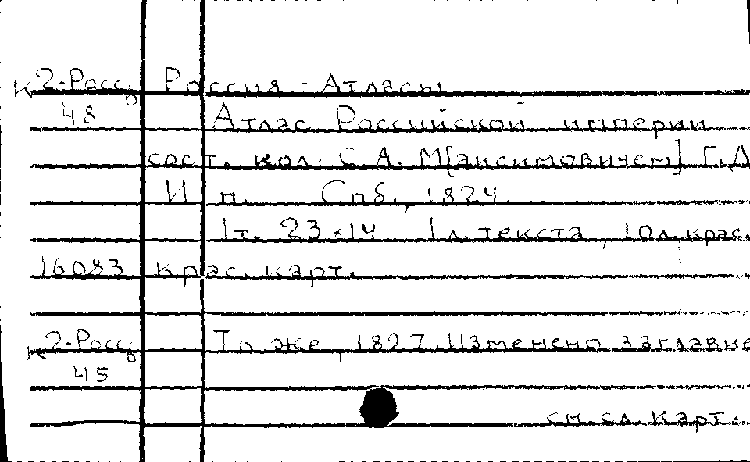 К2-Росс Россия - Атласы
48 Атлас Российской империи
сост. кол. С. А. М[аксимовичем] Г.Д
И н. Спб., 1824.
1т. 23×14 1 л. текста, 10л. крас.
16083 крас. карт.
К2-Росс То же, 1827. Изменено заглавие
45
см. сл. карт.